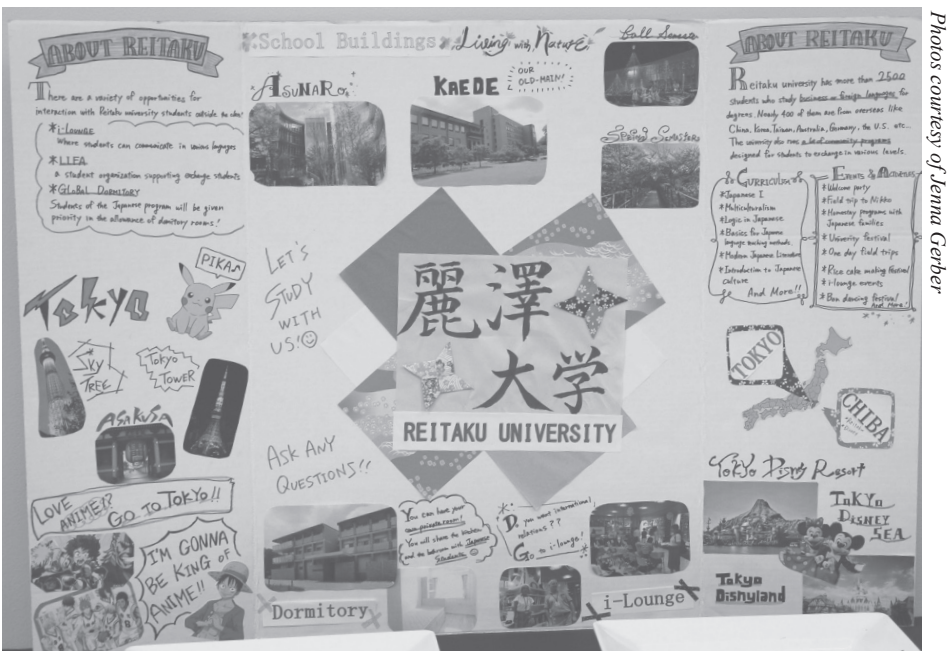 ABOUT REITAKU
There are a variety of opportunities for
interaction with Reitaku university students outside
*i-LOUNGE
Where students can communicate in various languages
*LLEA
a student organization supporting exchange students
*GLOBAL DORMITORY
Students of the Japanese program will be given
priority in the allowance of domitory rooms!
TOKYO
PIKA♪
SKY
TREE
TOKYO
TOWER
ASAKUSA
LOVE
ANIME!?
GO TO TOKYO!!
I'M GONNA
BE KING OF
ANIME!!
School Buildings
Living with Nature
ASUNARO
KAEDE
OUR
OLD-MAIN!
Fall Semester
Spring Semester
LET'S
STUDY
WITH
US!☺
ASK ANY
QUESTIONS!!
麗澤
大学
REITAKU UNIVERSITY
Dormitory
You can have your
own private room!
You will share the kitchen
and the bathroom with Japanese
Students
Do you want international
relations??
Go to i-lounge!
i-Lounge
ABOUT REITAKU
Reitaku university has more than 2500
students who study business or foreign languages for
degrees. Nearly 400 of them are from overseas like
China, Korea, Taiwan, Australia, Germany, the U.S. etc...
The university also runs a lot of community programs
designed for students to exchange in various levels.
CURRICULUM
*Japanese I
*Multiculturalism
*Logic in Japanese
*Basics for Japanese
language teaching methods.
*Modern Japanese Literature
*Introduction to Japanese
culture
And More!!
EVENTS & ACTIVITIES
*Welcome party
*Field trip to Nikko
*Homestay programs with
Japanese families
*University festival
*One day field trips
*Rice cake making festival
*i-lounge events
*Bon dancing festival
And More!
TOKYO
CHIBA
Tokyo Disney Resort
TOKYO
DISNEY
SEA
Tokyo
Disneyland
Photos courtesy of Jenna Gerber